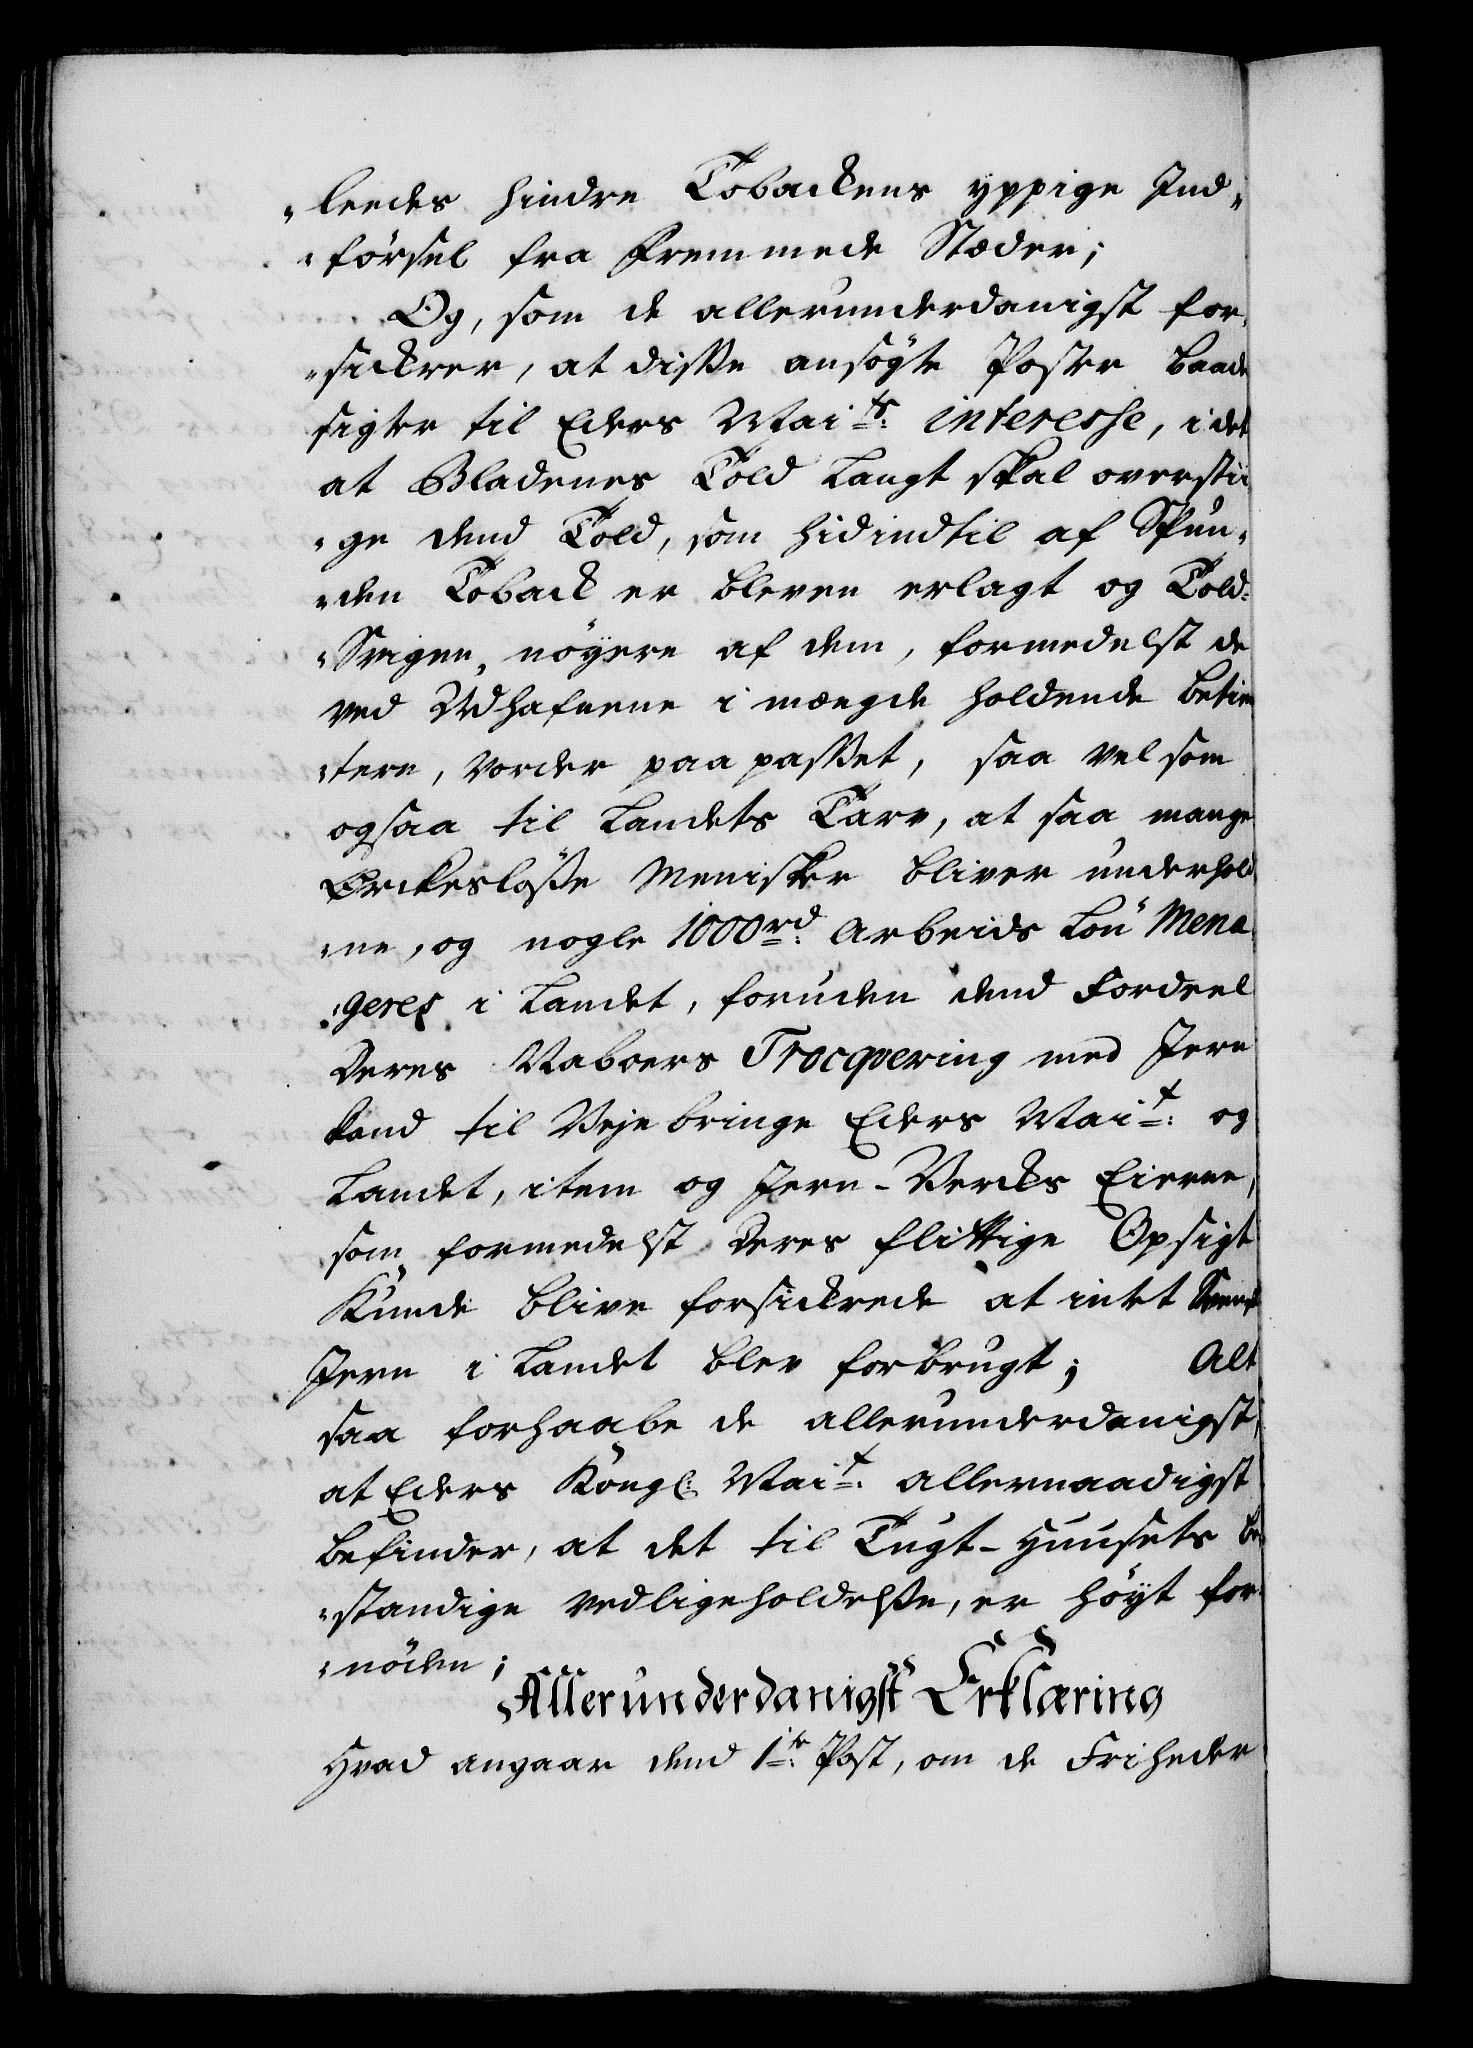 „leedes hindre Tobackens yppige Ind„
„försel fra Fremmede Stæder;
Og, som de allerunderdanigst for„
„sickrer, at disse ansögte Poster baade
sigter til Eders Mai<sup>ts</sup>: interesse, i det
at Bladenes Told langt skal overstii
„ge dend Told, som hidindtil af Spun„
„den Toback er bleven erlagt og Told„
„Svigen nöyere af dem, formedelst de
ved Udhafnene i mængde holdende betien
„tere, vorder paa passet, saa vel som
ogsaa til Landets Tarv, at saa mange
Ørckeslöse Menisker bliver underhold
„ne, og nogle 1000 rd: Arbeids Lön Mena„
„geres i Landet, foruden dend Fordeel
Deres Naboers Trocqvering med Jern
kand til Veje bringe Eders Mai<sup>t</sup>: og
Landet, item og Jern-Vercks Eierne,
som formedelst Deres flittige Opsigt
Kunde blive forsickrede at intet Svensk
Jern i Landet blev forbrugt; Alt
saa forhaabe de allerunderdanigst,
at Eders Kongl: Mai<sup>t</sup>: allernaadigst
befinder, at det til Tugt-Huusets be
„standige vedligeholdelse, er höyt for„
„nöden;
Allerunderdanigst Erklæring
Hvad angaar dend 1<sup>te</sup>: Post, om de Friheder